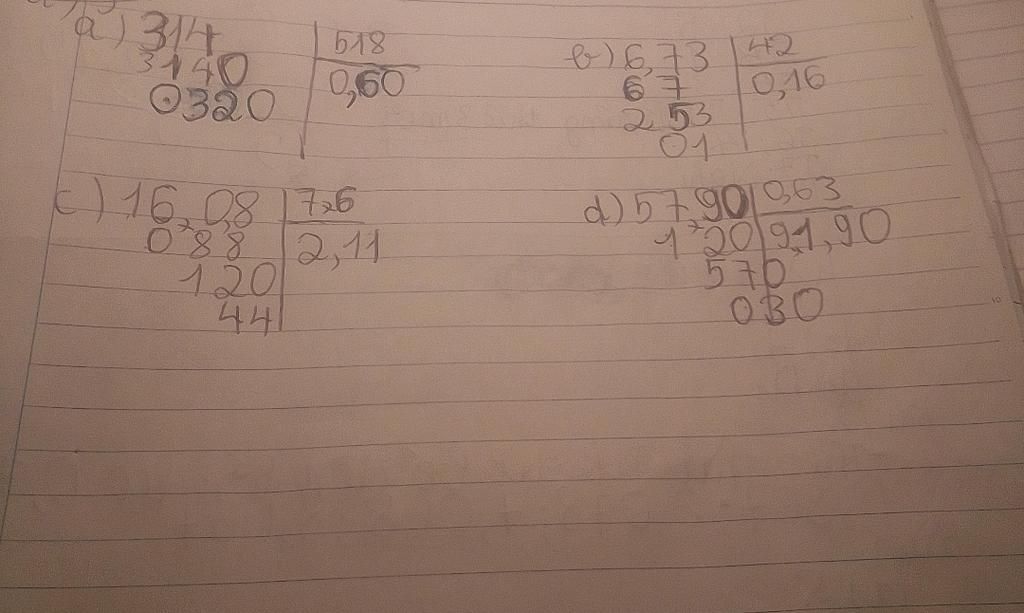 a) 314 518
3140 0,60
0320
b) 6,73 42
67 0,16
2 53
01
c) 16,0,8 7,6
0 88 2,11
120
44
d) 57,90 0,63
1 20 91,90
570
030